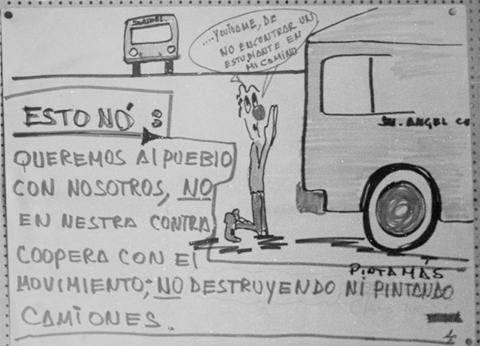 ....Y CUIDAME, DE
NO ENCONTRAR UN
ESTUDIANTE EN
MI CAMINO
SN. ANGEL
ESTO NÓ :
QUEREMOS Al PUEBlO
CON NOSOTROS, NO
EN NESTRA CONTRA
COOPERA CON El
MOVIMIENTO; NO DESTRUYENDO NI PINTANDO
CAMIONES.